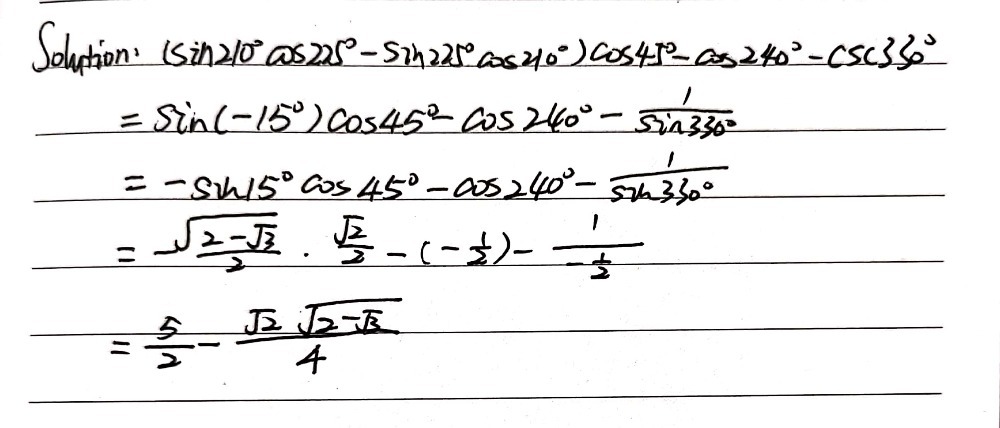 Solution: (sin210° cos225° - sin225° cos210°) cos45° - cos240° - csc330°
= sin(-15°) cos45° - cos240° - 1/sin330°
= -sin15° cos45° - cos240° - 1/sin330°
= -√(2-√3)/2 · √2/2 - (-1/2) - 1/(-1/2)
= 5/2 - √2 √(2-√3)/4